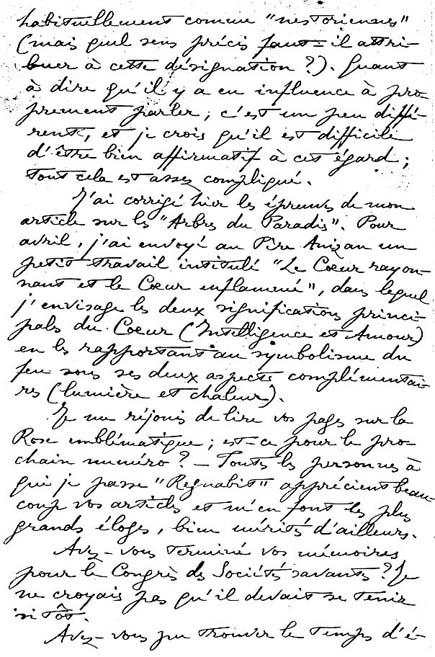 habituellement comme "nestoriennes"
(mais quel sens précis faut-il attri-
buer à cette désignation ?). Quant
à dire qu'il y a eu influence à pro-
prement parler, c'est un peu diffé-
rent, et je crois qu'il est difficile
d'être bien affirmatif à cet égard ;
tout cela est assez compliqué.
J'ai corrigé hier les épreuves de mon
article sur les "Arbres du Paradis". Pour
avril, j'ai envoyé au Père Anizan un
petit travail intitulé "Le Cœur rayon-
nant et le Cœur enflammé", dans lequel
j'envisage les deux significations princi-
pales du Cœur (Intelligence et Amour)
en les rapportant au symbolisme du
feu sous ses deux aspects complémentai-
res (lumière et chaleur).
Je me réjouis de lire vos pages sur la
Rose emblématique ; est-ce pour le pro-
chain numéro ? – Toutes les personnes à
qui je passe "Regnabit" apprécient beau-
coup vos articles et m'en font les plus
grands éloges, bien mérités d'ailleurs.
Avez-vous terminé vos mémoires
pour le Congrès des Sociétés savantes ? Je
ne croyais pas qu'il devait se tenir
si tôt.
Avez-vous pu trouver le temps d'é-